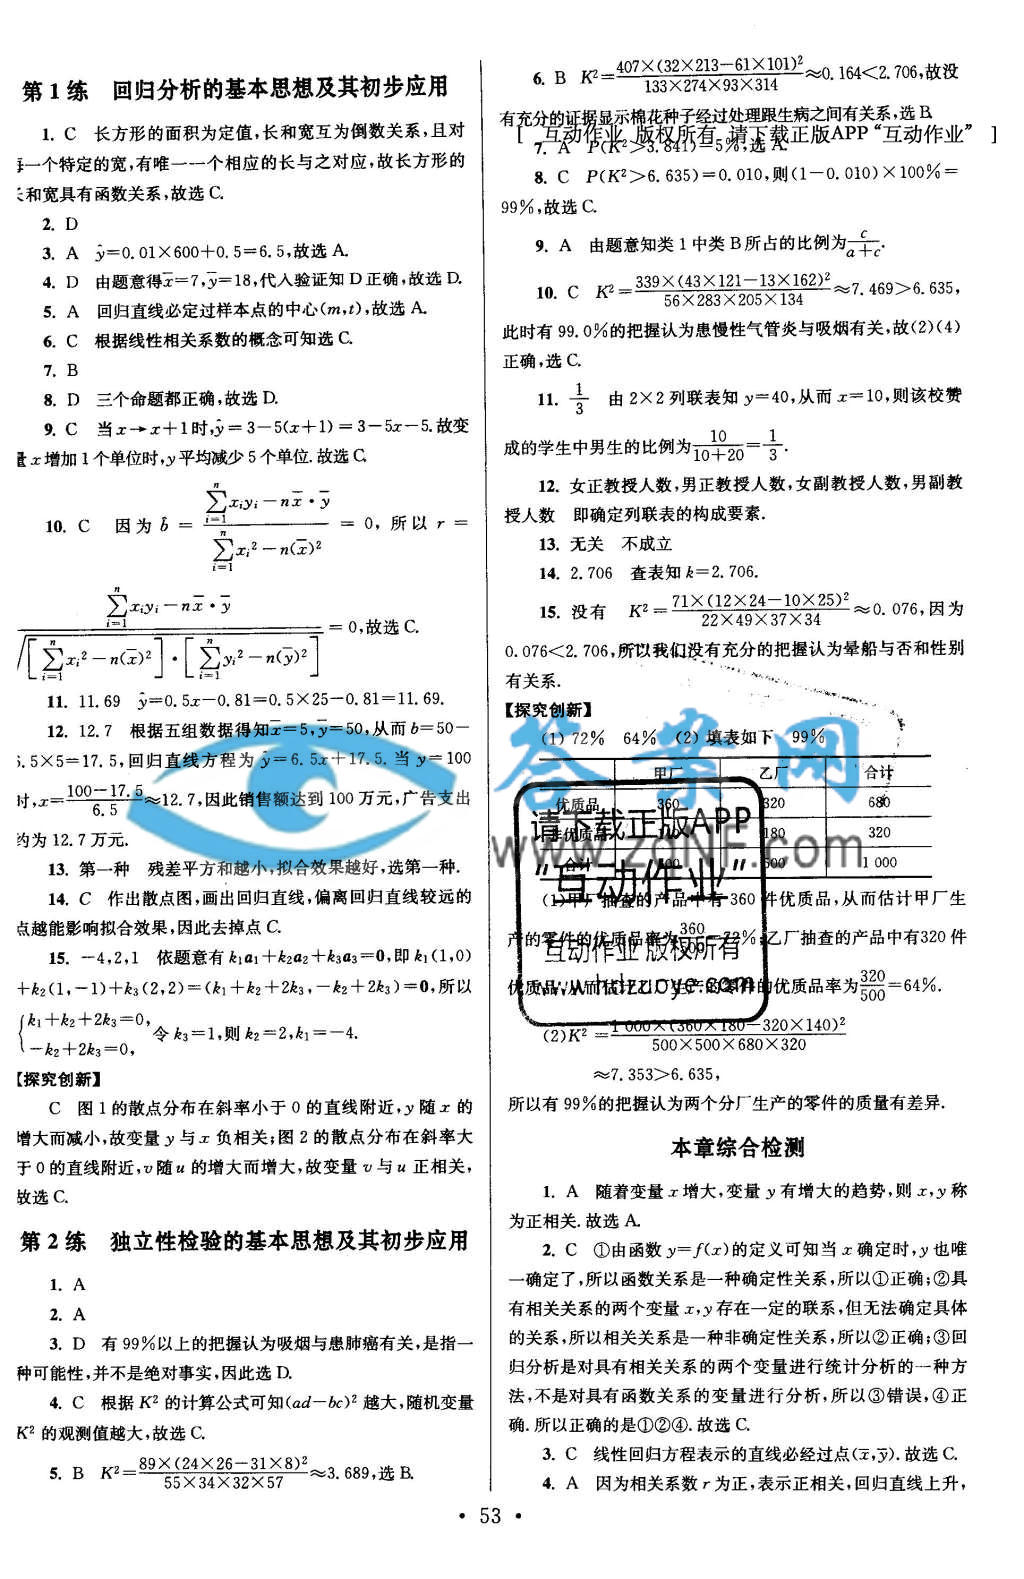 第1练　回归分析的基本思想及其初步应用
1. C　长方形的面积为定值,长和宽互为倒数关系,且对
一个特定的宽,有唯一一个相应的长与之对应,故长方形的
和宽具有函数关系,故选C.
2. D
3. A　ŷ=0.01×600+0.5=6.5,故选A.
4. D　由题意得x̄=7,ȳ=18,代入验证知D正确,故选D.
5. A　回归直线必定过样本点的中心(m,t),故选A.
6. C　根据线性相关系数的概念可知选C.
7. B
8. D　三个命题都正确,故选D.
9. C　当x→x+1时,ŷ=3-5(x+1)=3-5x-5.故变
量x增加1个单位时,y平均减少5个单位.故选C.
10. C　因为b̂=(∑_{i=1}^{n}xᵢyᵢ-nx̄·ȳ)/(∑_{i=1}^{n}xᵢ²-n(x̄)²)=0,所以r=
(∑_{i=1}^{n}xᵢyᵢ-nx̄·ȳ)/√([∑_{i=1}^{n}xᵢ²-n(x̄)²]·[∑_{i=1}^{n}yᵢ²-n(ȳ)²])=0,故选C.
11. 11.69　ŷ=0.5x-0.81=0.5×25-0.81=11.69.
12. 12.7　根据五组数据得知x̄=5,ȳ=50,从而b=50-
.5×5=17.5,回归直线方程为ŷ=6.5x+17.5.当y=100
时,x=(100-17.5)/6.5≈12.7,因此销售额达到100万元,广告支出
约为12.7万元.
13. 第一种　残差平方和越小,拟合效果越好,选第一种.
14. C　作出散点图,画出回归直线,偏离回归直线较远的
点越能影响拟合效果,因此去掉点C.
15. -4,2,1　依题意有k₁a₁+k₂a₂+k₃a₃=0,即k₁(1,0)
+k₂(1,-1)+k₃(2,2)=(k₁+k₂+2k₃,-k₂+2k₃)=0,所以
{k₁+k₂+2k₃=0,
-k₂+2k₃=0,　令k₃=1,则k₂=2,k₁=-4.
【探究创新】
C　图1的散点分布在斜率小于0的直线附近,y随x的
增大而减小,故变量y与x负相关;图2的散点分布在斜率大
于0的直线附近,v随u的增大而增大,故变量v与u正相关,
故选C.
第2练　独立性检验的基本思想及其初步应用
1. A
2. A
3. D　有99%以上的把握认为吸烟与患肺癌有关,是指一
种可能性,并不是绝对事实,因此选D.
4. C　根据K²的计算公式可知(ad-bc)²越大,随机变量
K²的观测值越大,故选C.
5. B　K²=89×(24×26-31×8)²/(55×34×32×57)≈3.689,选B.
6. B　K²=407×(32×213-61×101)²/(133×274×93×314)≈0.164<2.706,故没
有充分的证据显示棉花种子经过处理跟生病之间有关系,选B.
[ 互动作业 版权所有 请下载正版APP“互动作业” ]
7. A　P(K²>3.841)=5%,选A.
8. C　P(K²>6.635)=0.010,则(1-0.010)×100%=
99%,故选C.
9. A　由题意知类1中类B所占的比例为c/(a+c).
10. C　K²=339×(43×121-13×162)²/(56×283×205×134)≈7.469>6.635,
此时有99.0%的把握认为患慢性气管炎与吸烟有关,故(2)(4)
正确,选C.
11. 1/3　由2×2列联表知y=40,从而x=10,则该校赞
成的学生中男生的比例为10/(10+20)=1/3.
12. 女正教授人数,男正教授人数,女副教授人数,男副教
授人数　即确定列联表的构成要素.
13. 无关　不成立
14. 2.706　查表知k=2.706.
15. 没有　K²=71×(12×24-10×25)²/(22×49×37×34)≈0.076,因为
0.076<2.706,所以我们没有充分的把握认为晕船与否和性别
有关系.
【探究创新】
(1)72%　64%　(2)填表如下　99%
甲厂　乙厂　合计
优质品　360　320　680
非优质品　180　320
合计　500　1 000
(1)甲厂抽查的产品中有360件优质品,从而估计甲厂生
产的零件的优质品率为360/=72%;乙厂抽查的产品中有320件
优质品,从而估计乙厂生产的零件的优质品率为320/500=64%.
(2)K²=1 000×(360×180-320×140)²/(500×500×680×320)
≈7.353>6.635,
所以有99%的把握认为两个分厂生产的零件的质量有差异.
答案网
www.zqnf.com
请下载正版APP
“互动作业”
互动作业 版权所有
www.hdzuoye.com
本章综合检测
1. A　随着变量x增大,变量y有增大的趋势,则x,y称
为正相关.故选A.
2. C　①由函数y=f(x)的定义可知当x确定时,y也唯
一确定了,所以函数关系是一种确定性关系,所以①正确;②具
有相关关系的两个变量x,y存在一定的联系,但无法确定具体
的关系,所以相关关系是一种非确定性关系,所以②正确;③回
归分析是对具有相关关系的两个变量进行统计分析的一种方
法,不是对具有函数关系的变量进行分析,所以③错误,④正
确.所以正确的是①②④.故选C.
3. C　线性回归方程表示的直线必经过点(x̄,ȳ).故选C.
4. A　因为相关系数r为正,表示正相关,回归直线上升,
• 53 •